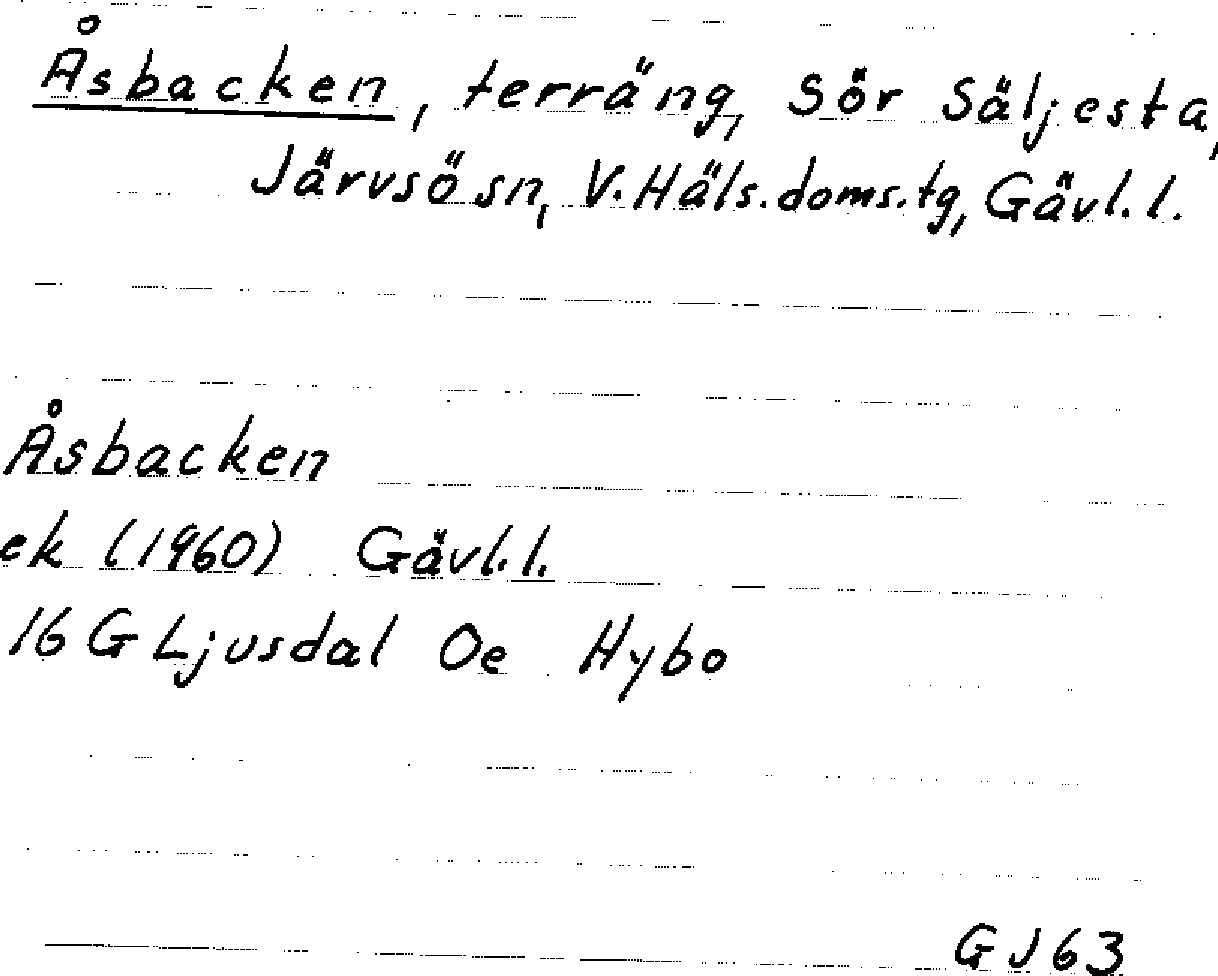 Åsbacken, terräng, Sör Säljesta,
Järvsö sn, V. Häls. doms. tg, Gävl. l.
Åsbacken
ek (1960) Gävl. l.
16 G Ljusdal Oe Hybo
GJ 63